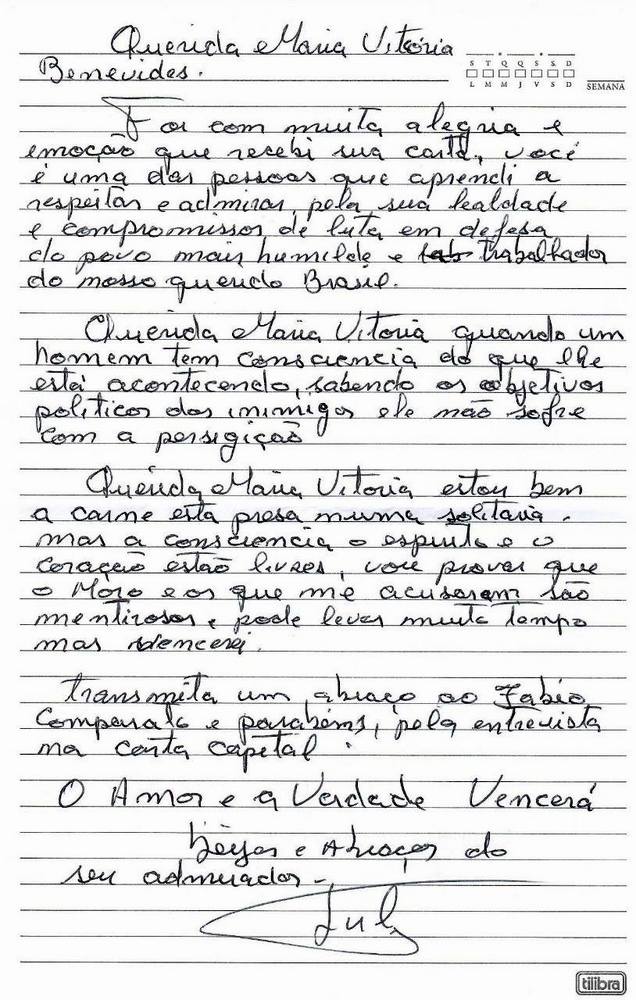 Querida Maria Vitória
Benevides.
S T Q Q S S D
L M M J V S D
SEMANA
Foi com muita alegria e
emoção que recebi sua carta, você
é uma das pessoas que aprendi a
respeitar e admirar, pela sua lealdade
e compromissos de luta em defesa
do povo mais humilde e trabalhador
do nosso querido Brasil.
Querida Maria Vitoria quando um
homem tem consciencia do que lhe
está acontecendo, sabendo os objetivos
politicos dos inimigos ele não sofre
com a persegição
Querida Maria Vitoria estou bem
a carne esta presa numa solitaria.
mas a consciencia o espirito e o
coração estão livres, vou provar que
o Moro e os que me acusaram são
mentirosos, pode levar muito tempo
mas vencerei.
transmita um abraço ao Fabio
Comparato e parabens, pela entrevista
na carta capital.
O Amor e a Verdade Vencerá
beijos e Abraços do
seu admirador -
Lula
tilibra